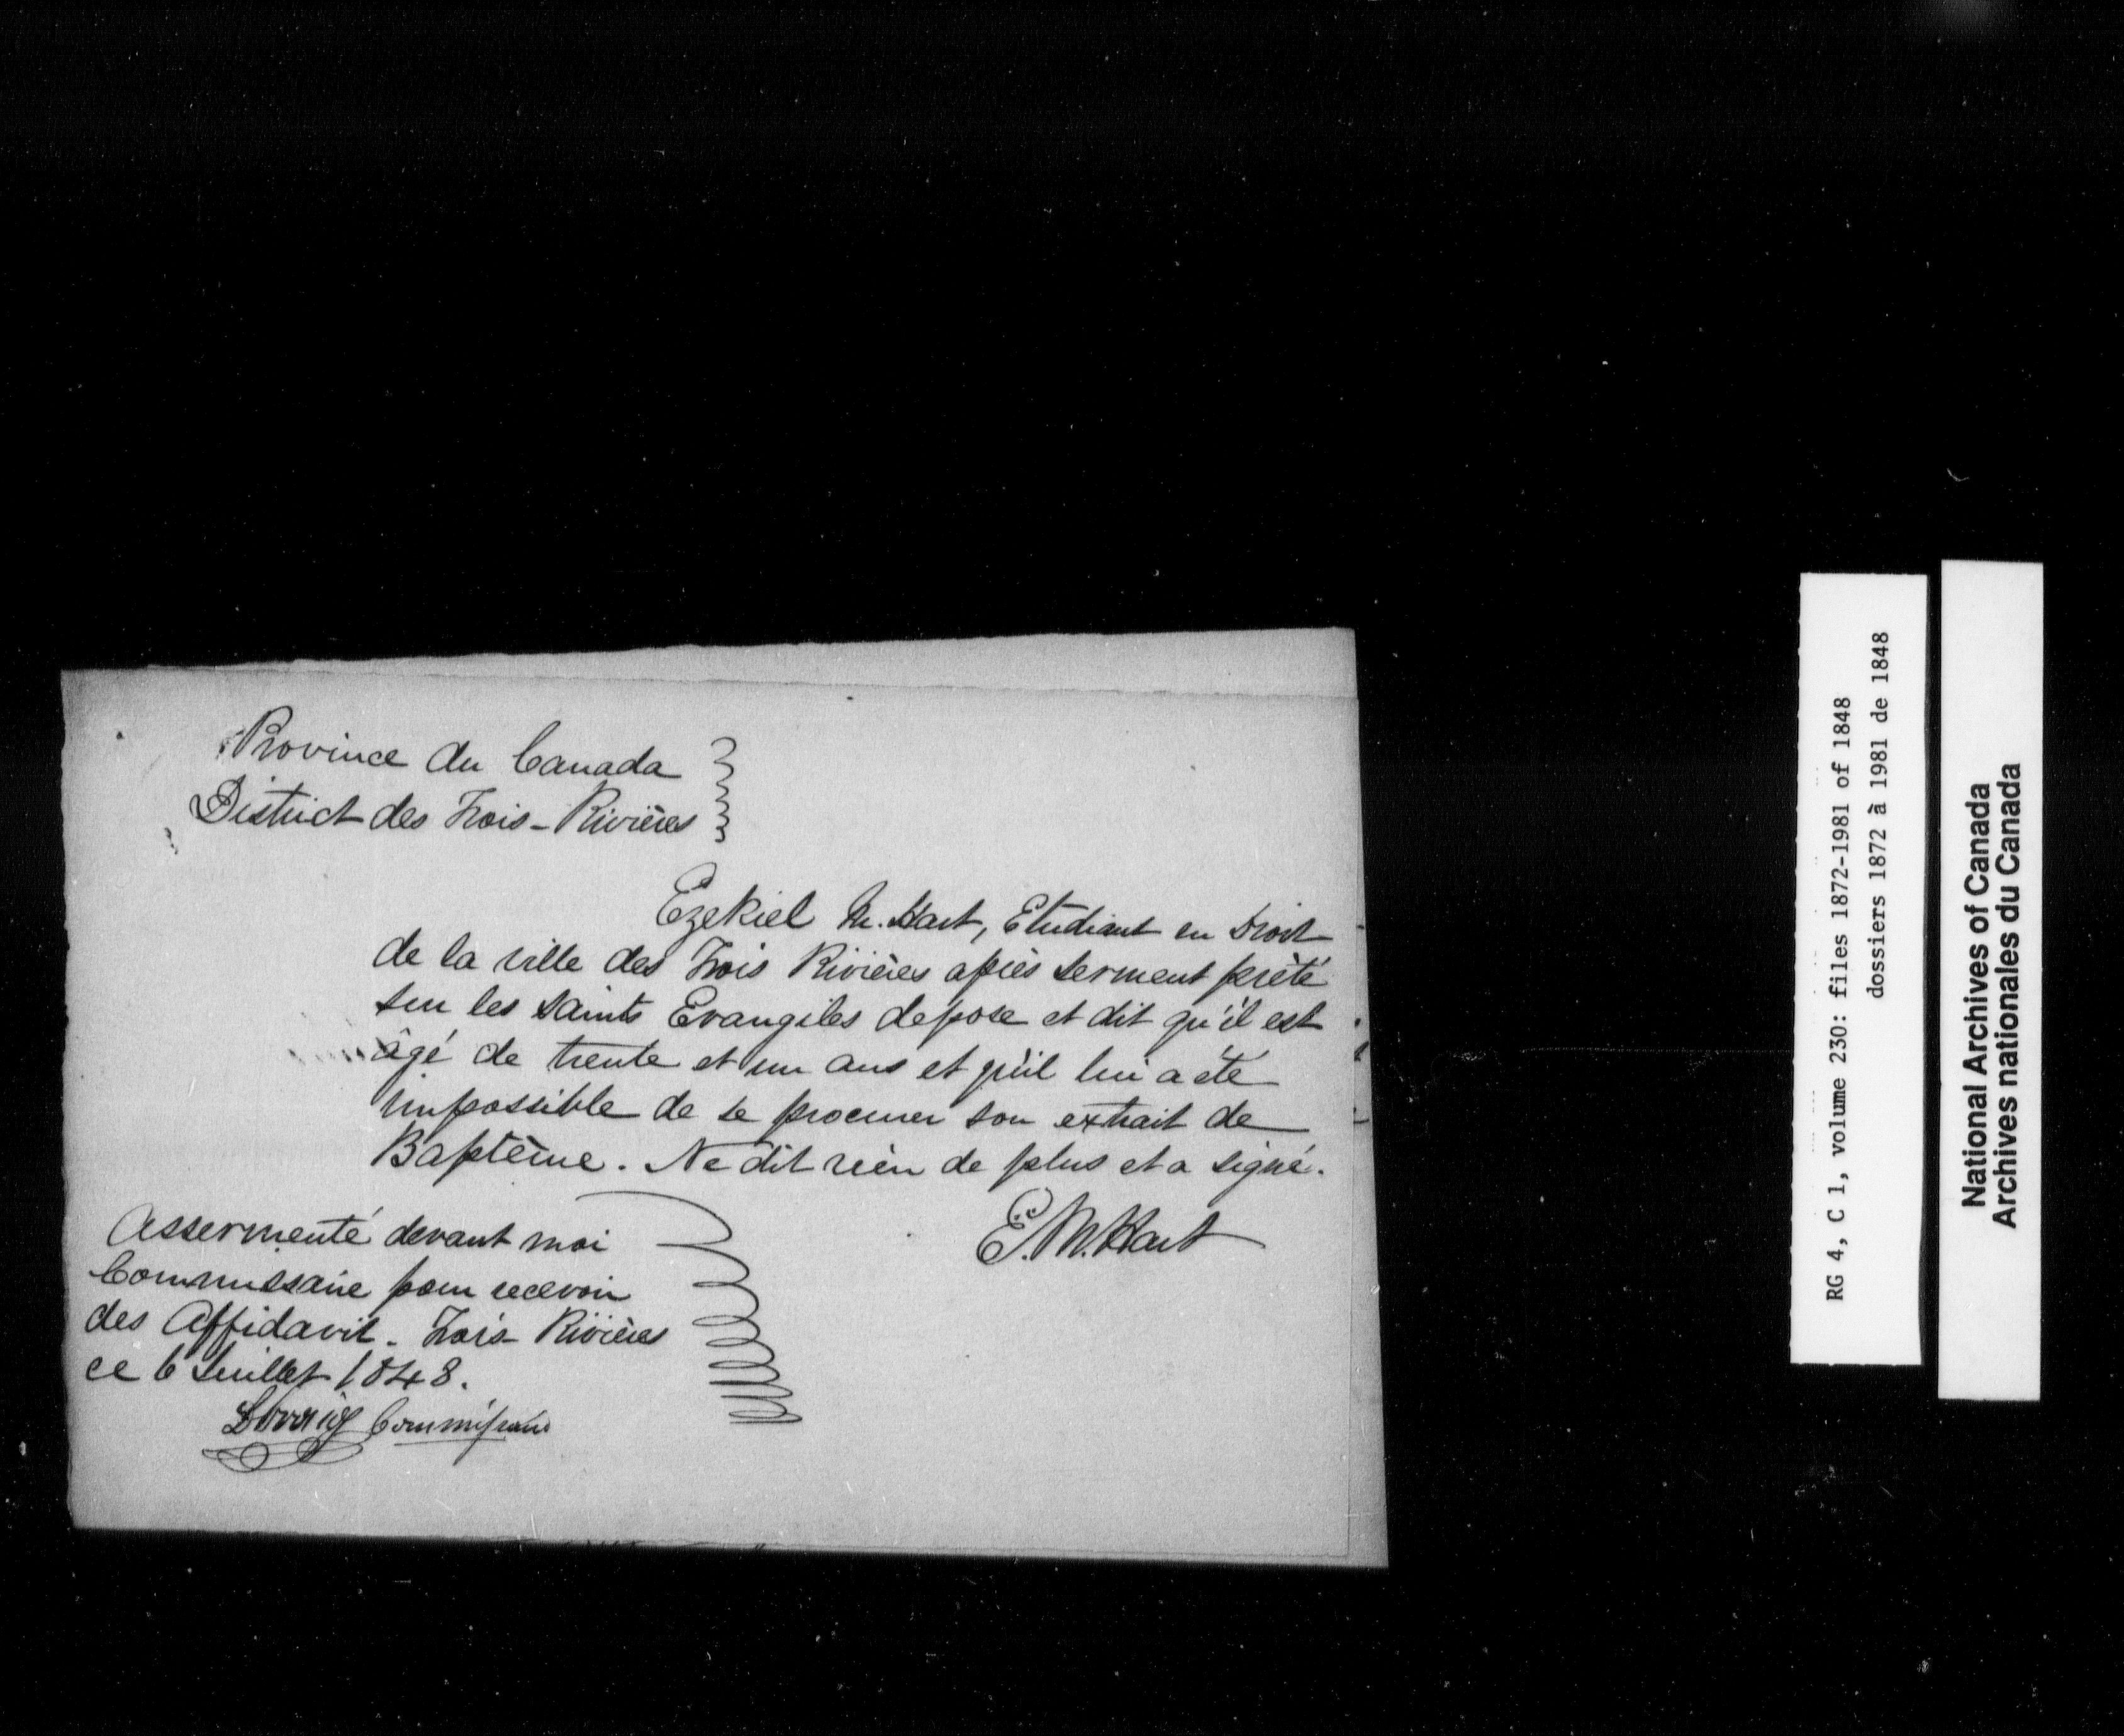 Province du Canada
District des Trois-Rivières
Ezekiel M. Hart, Etudiant en Droit
de la ville des Trois Rivières après serment prêté
sur les saints Evangiles depose et dit qu'il est
âgé de trente et un ans et qu'il lui a été
impossible de se procurer son extrait de
Baptême. Ne dit rien de plus et a signé.
E. M. Hart
Assermenté devant moi
Commissaire pour recevoir
des Affidavit. Trois-Rivières
ce 6 Juillet 1848.
Commissaire
RG 4, C 1, volume 230: files 1872-1981 of 1848
dossiers 1872 à 1981 de 1848
National Archives of Canada
Archives nationales du Canada